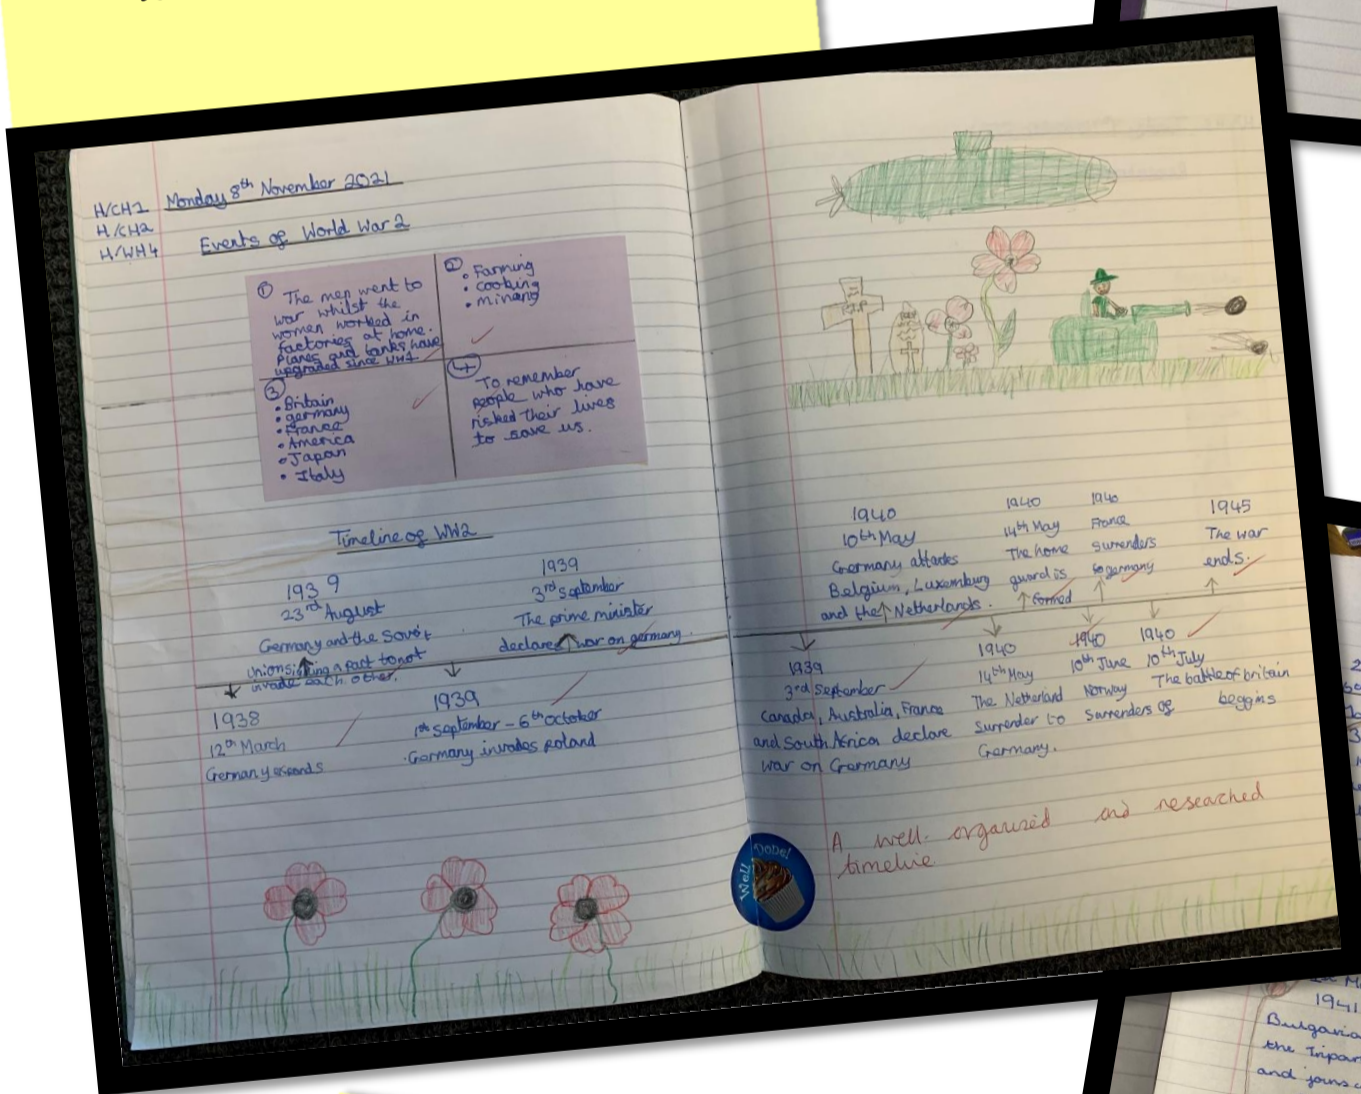 H/CH1
H/CH2
H/WH4
Monday 8th November 2021
Events of World War 2
①
The men went to
war whilst the
women worked in
factories at home.
Planes and tanks have
upgraded since WW1.
②
• Farming
• cooking
• minang
③
• Britain
• germany
• France
• America
• Japan
• Italy
④
To remember
people who have
risked their lives
to save us.
Timeline of WW2
1939
23rd August
Germany and the Soviet
unionsigning a pact to not
invade each other.
1939
3rd September
The prime minister
declares war on germany.
1938
12th March
Germany expands
1939
1th September - 6th October
Germany invades poland
1940
10th May
Germany attacks
Belgium, Luxemburg
and the Netherlands.
1940
14th May
The home
guard is
formed
1940
France
surrenders
to germany
1945
The war
ends.
1939
3rd September
Canada, Australia, France
and South Africa declare
war on Germany
1940
14th May
The Netherland
Surrender to
Germany.
1940
10th June
Norway
Surrenders of
1940
10th July
The battle of britain
beggins
Well Done!
A well-organised and researched
timeline
1941
Bulgaria
the Tripar
and joins